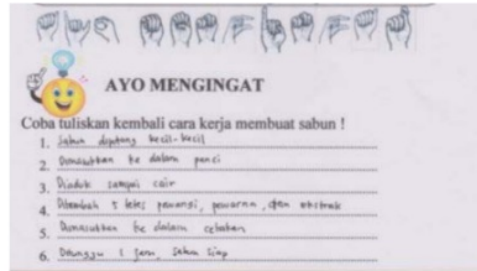 AYO MENGINGAT
Coba tuliskan kembali cara kerja membuat sabun !
1. Sabun dipotong kecil-kecil
2. Dimasukkan ke dalam panci
3. Diaduk sampai cair
4. Ditambah 5 tetes pewangi, pewarna, dan ekstrak
5. Dimasukkan ke dalam cetakan
6. Ditunggu 1 jam, sabun siap